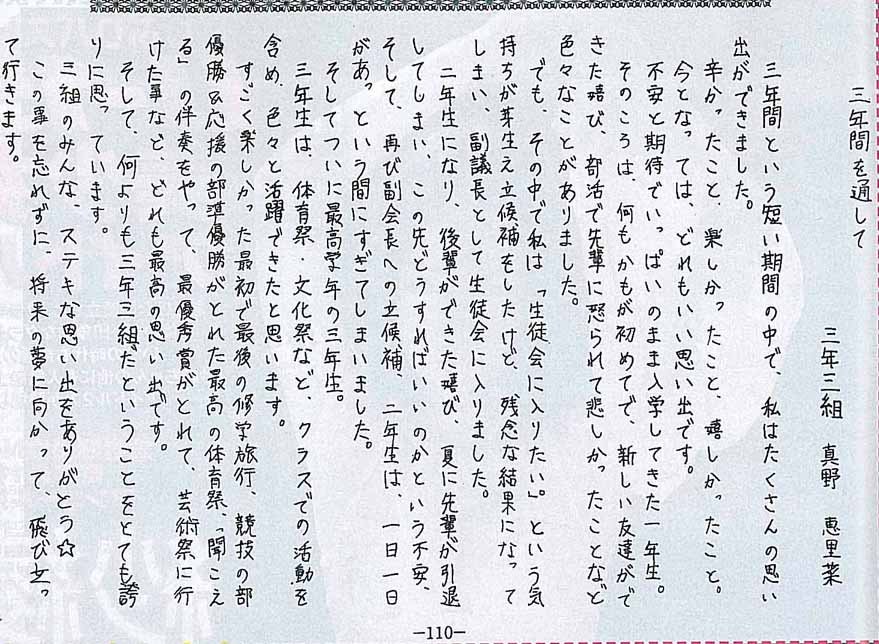 三年間を通して
三年三組　真野　恵里菜
三年間という短い期間の中で、私はたくさんの思い
出ができました。
辛かったこと、楽しかったこと、嬉しかったこと。
今となっては、どれもいい思い出です。
不安と期待でいっぱいのまま入学してきた一年生。
そのころは、何もかもが初めてで、新しい友達がで
きた喜び、部活で先輩に怒られて悲しかったことなど
色々なことがありました。
でも、その中で私は「生徒会に入りたい。」という気
持ちが芽生え立候補をしたけど、残念な結果になって
しまい、副議長として生徒会に入りました。
二年生になり、後輩ができた喜び、夏に先輩が引退
してしまい、この先どうすればいいのかという不安、
そして、再び副会長への立候補、二年生は、一日一日
があっという間にすぎてしまいました。
そしてついに最高学年の三年生。
三年生は、体育祭・文化祭など、クラスでの活動を
含め、色々と活躍できたと思います。
すごく楽しかった最初で最後の修学旅行、競技の部
優勝＆応援の部準優勝がとれた最高の体育祭、「聞こえ
る」の伴奏をやって、最優秀賞がとれて、芸術祭に行
けた事など、どれも最高の思い出です。
そして、何よりも三年三組だということをとても誇
りに思っています。
三組のみんな、ステキな思い出をありがとう☆
この事を忘れずに、将来の夢に向かって、飛び立っ
て行きます。
―110―